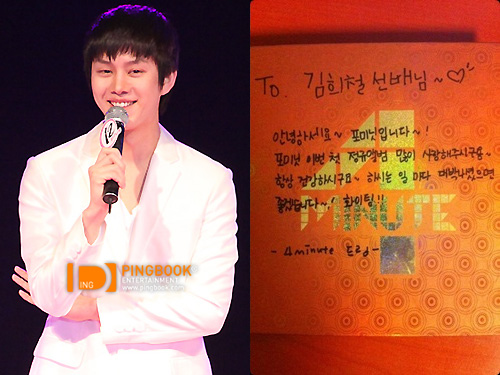 ING
PINGBOOK
ENTERTAINMENT
www.pingbook.com
To. 김희철 선배님~♡
안녕하세요~ 포미닛입니다~!
포미닛 이번 첫 정규앨범 많이 사랑해주시구요~
항상 건강하시구요~ 하시는 일 마다 대박나셨으면
좋겠습니다~^^ 화이팅!!
4MINUTE
- 4minute 드림 -